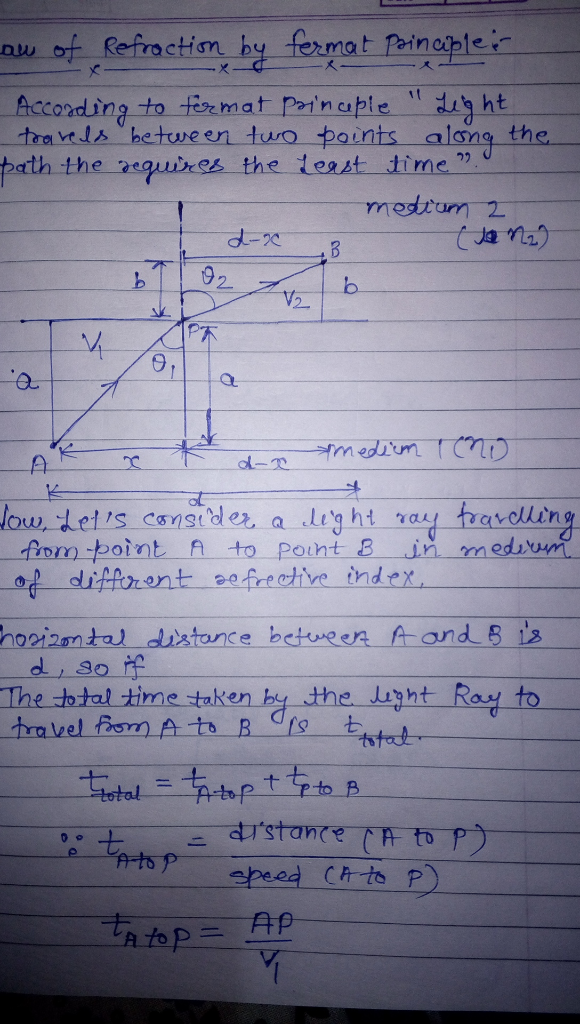 aw of Refraction by fermat Principle:-
According to fermat Principle " Light
travels between two points along the
path the requires the least time ".
medium 2
( n2)
d-x
B
b
θ2
b
V2
P
V1
θ1
a
a
A
x
d-x
medium 1 (n1)
d
Now, Let's consider a light ray travelling
from point A to point B in medium
of different refrective index,
horizontal distance between A and B is
d, so if
The total time taken by the light Ray to
travel from A to B is t total.
t total = t A to P + t P to B
∵ t A to P = distance (A to P)
speed (A to P)
t A to P = AP
V1